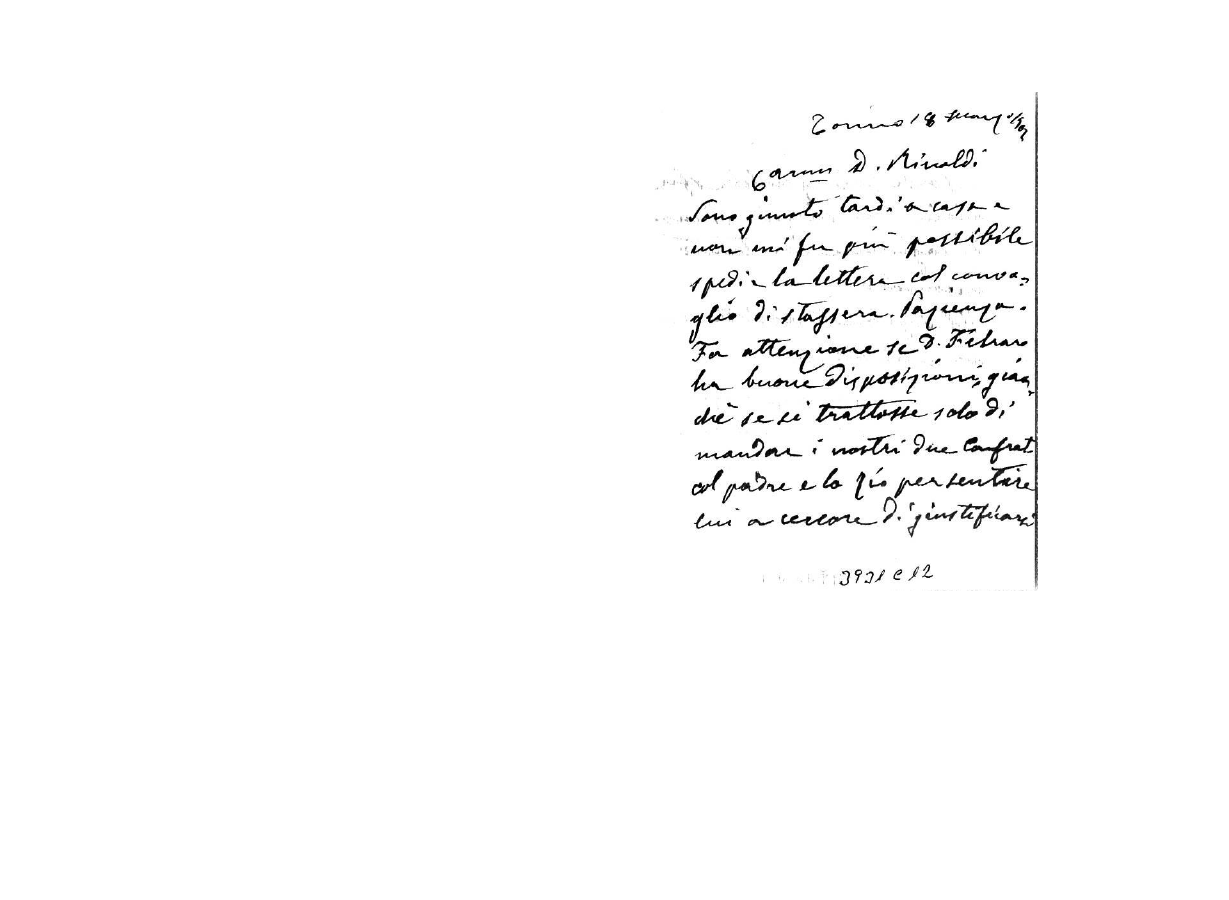 Torino 18 Marzo 1902
Car.mo D. Rinaldi
Sono giunto tardi a casa e
non mi fu più possibile
spedir la lettera col convo-
glio di stassera. Pazienza.
Fa attenzione se D. Febraro
ha buone disposizioni, giac-
chè se si trattasse solo di
mandar i nostri due Confrat
col padre e lo zio per sentire
lui a cercare di giustificarsi
3931 C 12